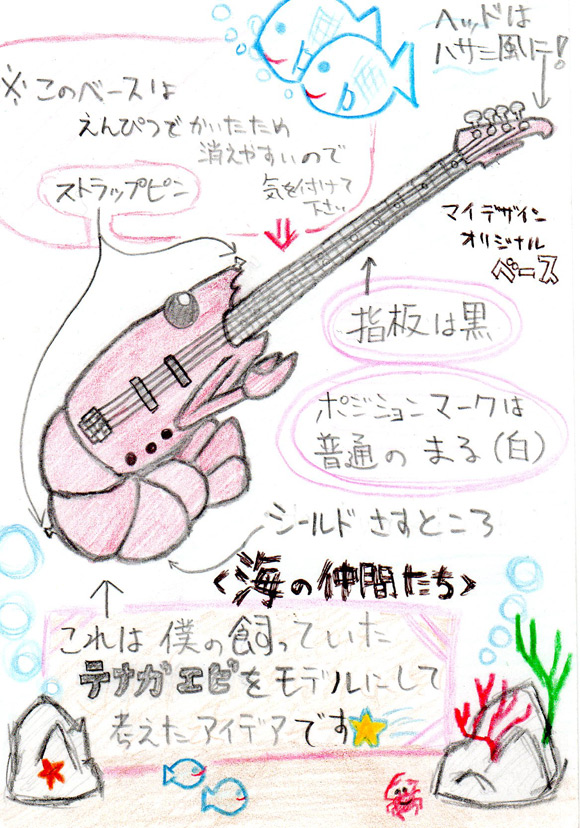 ヘッドは
ハサミ風に!
※このベースは
えんぴつでかいたため
消えやすいので
気を付けて
下さい
ストラップピン
マイデザイン
オリジナル
ベース
指板は黒
ポジションマークは
普通のまる(白)
シールドさすところ
<海の仲間たち>
これは僕の飼っていた
テナガエビをモデルにして
考えたアイデアです